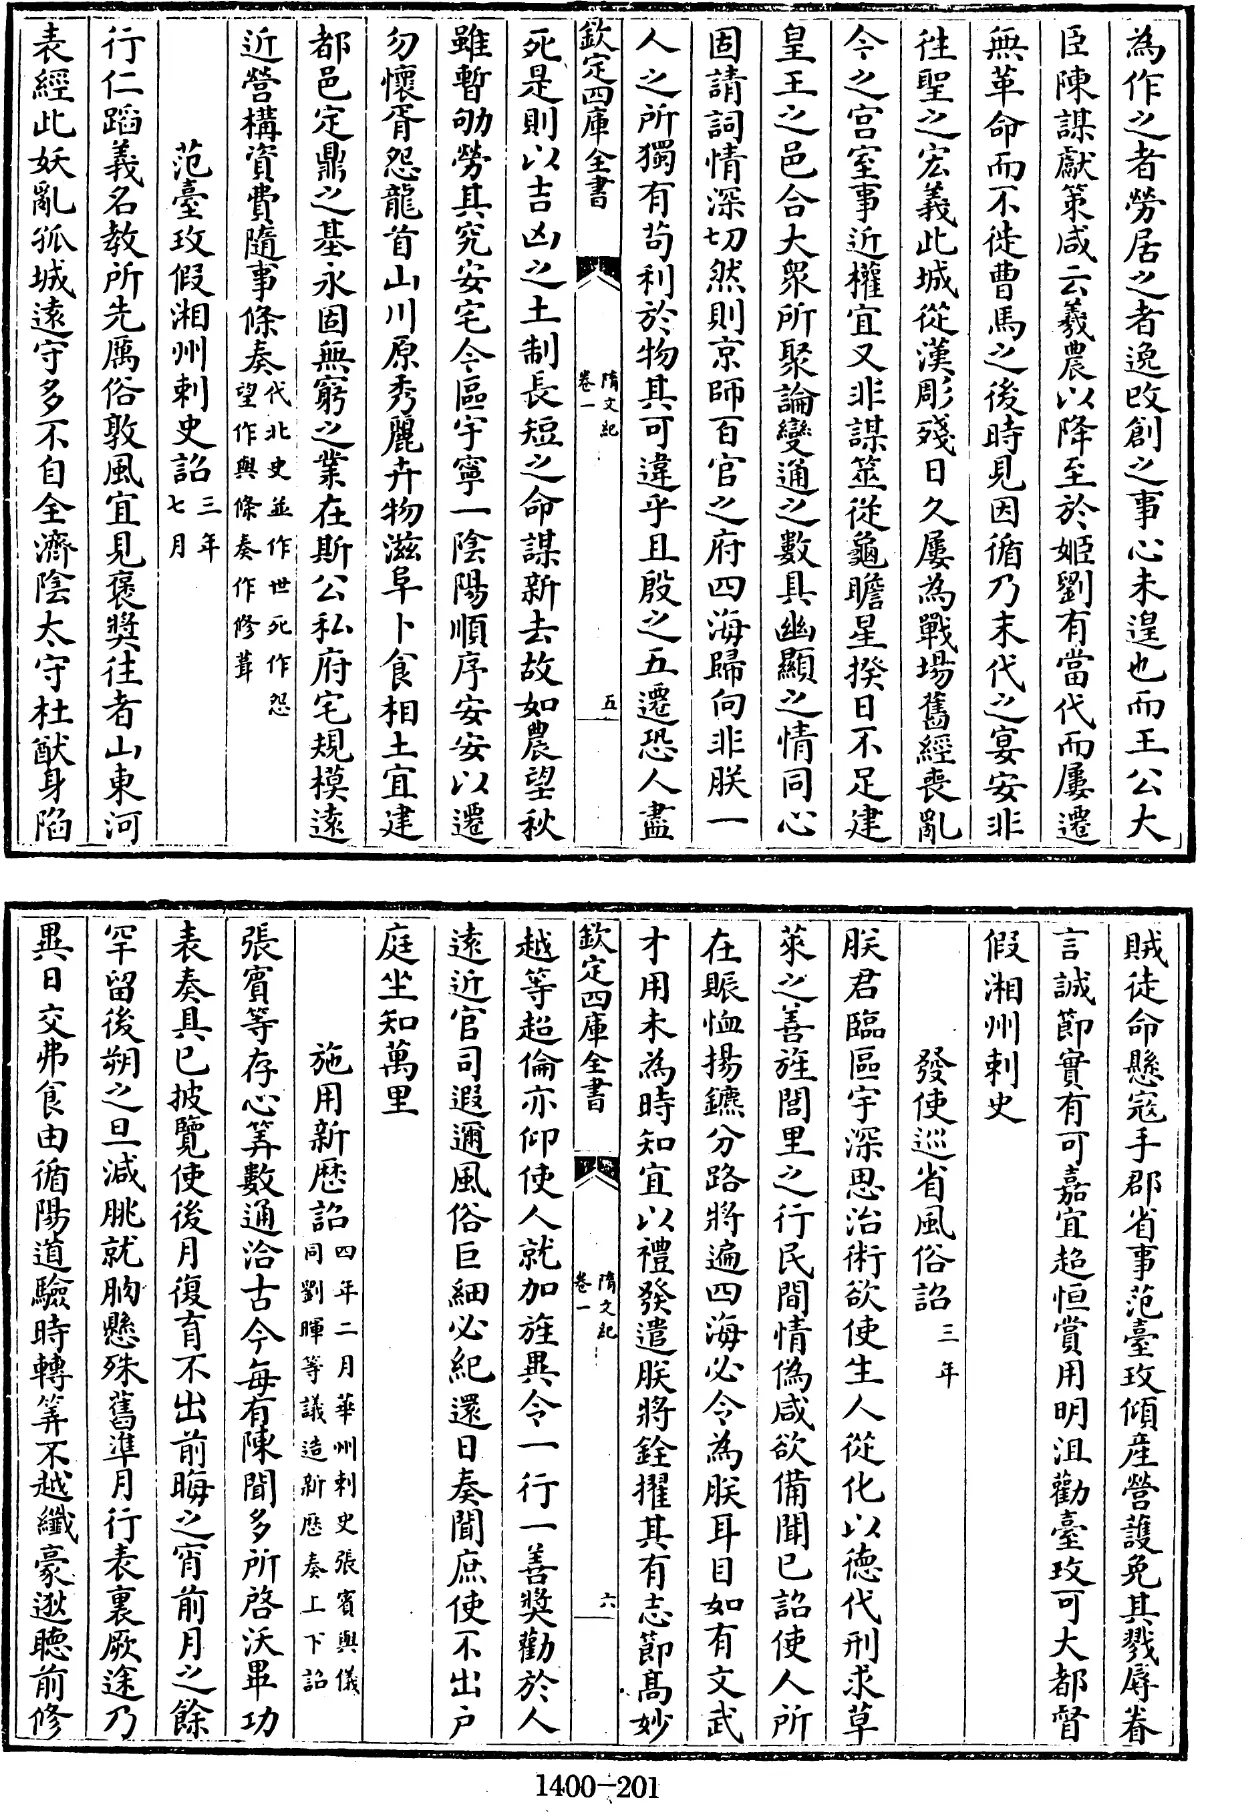 為作之者勞居之者逸改創之事心未遑也而王公大
臣陳謀獻策咸云羲農以降至於姬劉有當代而屢遷
無革命而不徙曹馬之後時見因循乃末代之宴安非
往聖之宏義此城從漢彫殘日久屢為戰場舊經喪亂
今之宫室事近權宜又非謀筮從龜瞻星揆日不足建
皇王之邑合大衆所聚論變通之數具幽顯之情同心
固請詞情深切然則京師百官之府四海歸向非朕一
人之所獨有苟利於物其可違乎且殷之五遷恐人盡
欽定四庫全書
隋文紀
卷一
五
死是則以吉凶之土制長短之命謀新去故如農望秋
雖暫劬勞其究安宅今區宇寧一陰陽順序安安以遷
勿懷胥怨龍首山川原秀麗卉物滋阜卜食相土宜建
都邑定鼎之基永固無窮之業在斯公私府宅規模遠
近營構資費隨事條奏代北史並作世死作怨
望作與條奏作修葺
范臺玫假湘州刺史詔三年
七月
行仁蹈義名教所先厲俗敦風宜見褒奬往者山東河
表經此妖亂孤城遠守多不自全濟陰太守杜猷身陷
賊徒命懸寇手郡省事范臺玫傾產營護免其戮辱眷
言誠節實有可嘉宜超恒賞用明沮勸臺玫可大都督
假湘州刺史
發使巡省風俗詔三年
朕君臨區宇深思治術欲使生人從化以德代刑求草
萊之善旌閭里之行民間情偽咸欲備聞已詔使人所
在賑恤揚鑣分路將遍四海必令為朕耳目如有文武
才用未為時知宜以禮發遣朕將銓擢其有志節高妙
欽定四庫全書
隋文紀
卷一
六
越等超倫亦仰使人就加旌異令一行一善奬勸於人
遠近官司遐邇風俗巨細必紀還日奏聞庶使不出户
庭坐知萬里
施用新歷詔四年二月華州刺史張賓與儀
同劉暉等議造新歷奏上下詔
張賓等存心筭數通洽古今每有陳聞多所啓沃畢功
表奏具已披覽使後月復育不出前晦之宵前月之餘
罕留後朔之旦減朓就朒懸殊舊準月行表裏厥途乃
異日交弗食由循陽道驗時轉筭不越纖豪逖聽前修
1400-201